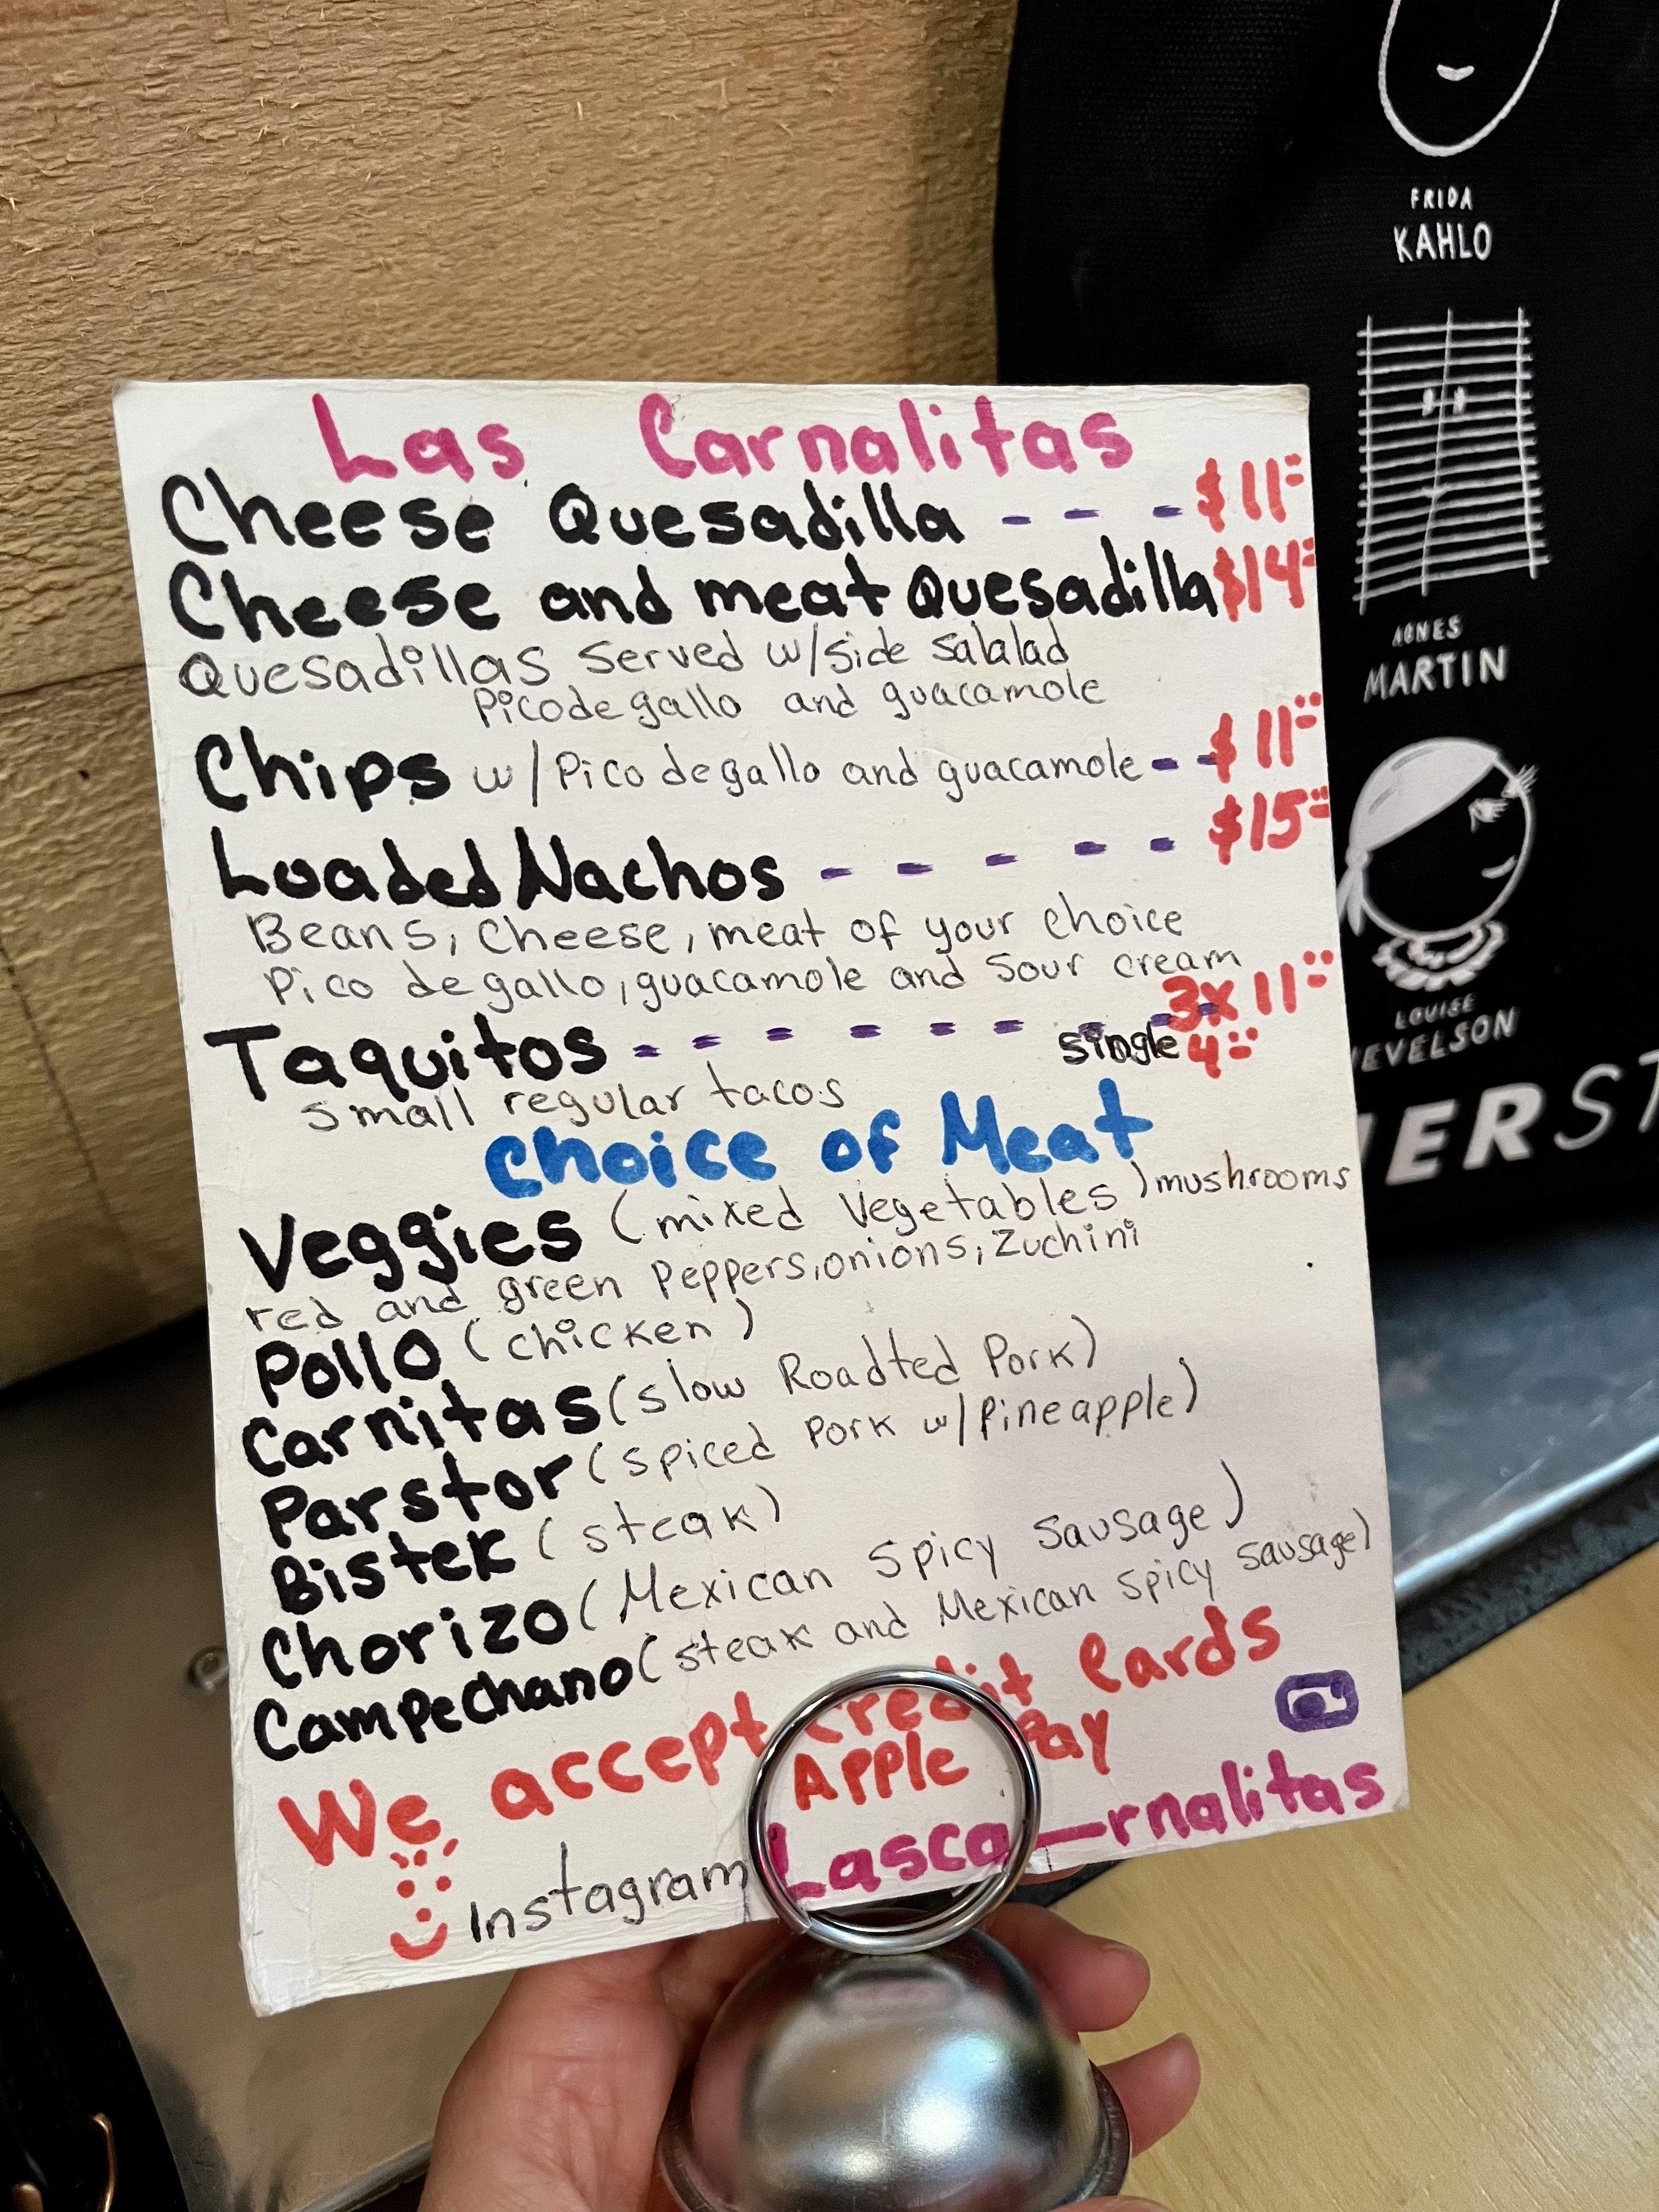 Las Carnalitas
Cheese Quesadilla - - - $11=
Cheese and meat Quesadilla $14=
Quesadillas served w/side salalad
Pico de gallo and guacamole
Chips w/Pico de gallo and guacamole - - $11=
Loaded Nachos - - - - - $15=
Beans, Cheese, meat of your choice
Pico de gallo, guacamole and Sour cream
Taquitos - - - - - - - - 3x 11=
single 4=
small regular tacos
Choice of Meat
Veggies (mixed Vegetables) mushrooms
red and green Peppers, onions, Zuchini
Pollo (chicken)
Carnitas (slow Roadted Pork)
Parstor (spiced Pork w/Pineapple)
Bistek (steak)
Chorizo (Mexican Spicy Sausage)
Campechano (steak and Mexican Spicy Sausage)
We accept Credit Cards
Apple Pay
Instagram Lasca_rnalitas
FRIDA
KAHLO
AGNES
MARTIN
LOUISE
NEVELSON